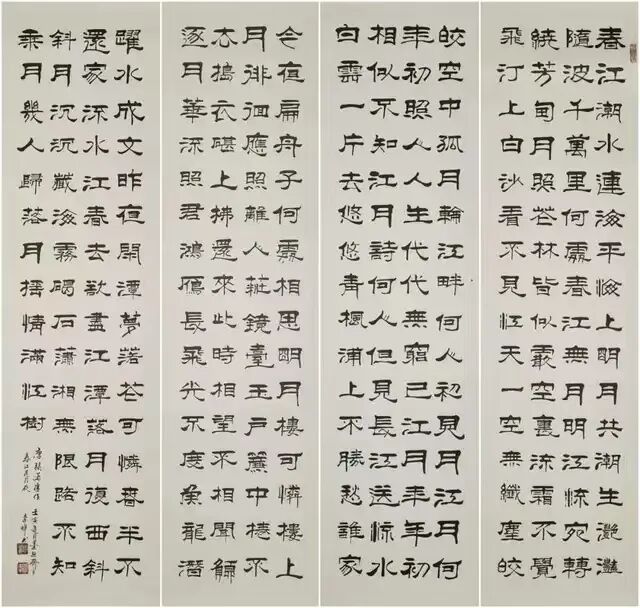 春江潮水連海平海上明月共潮生灩灩
隨波千萬里何處春江無月明江流宛轉
繞芳甸月照花林皆似霰空裏流霜不覺
飛汀上白沙看不見江天一空無纖塵皎
皎空中孤月輪江畔何人初見月江月何
年初照人人生代代無窮已江月年年初
相似不知江月詩何人但見長江送流水
白雲一片去悠悠青楓浦上不勝愁誰家
今夜扁舟子何處相思明月樓可憐樓上
月徘徊應照離人妝鏡臺玉戶簾中捲不
去搗衣砧上拂還來此時相望不相聞願
逐月華流照君鴻雁長飛光不度魚龍潛
躍水成文昨夜閑潭夢落花可憐春半不
還家流水江春去欲盡江潭落月復西斜
斜月沉沉藏海霧碣石瀟湘無限路不知
乘月幾人歸落月搖情滿江樹
唐張若虛作
春江花月夜